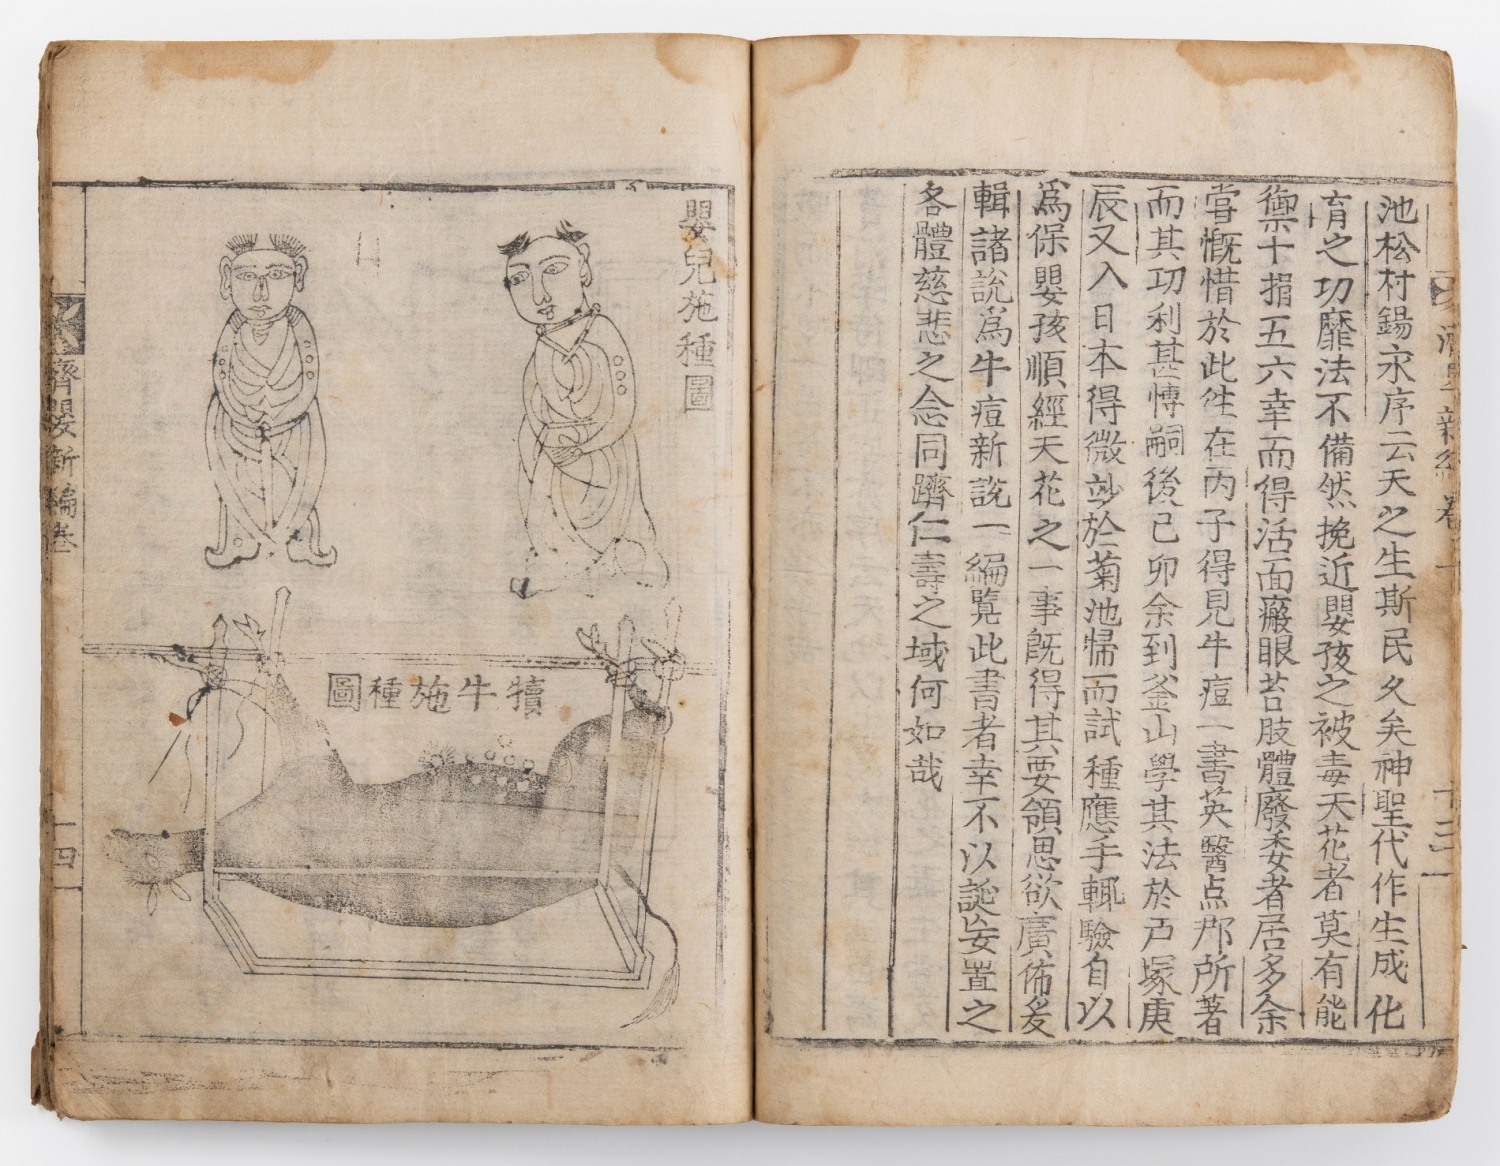 池松村錫永序云天之生斯民久矣神聖代作生成化
育之功靡法不備然挽近嬰孩之被毒天花者莫有能
禦十損五六幸而得活面瘢眼苦肢體廢委者居多余
嘗慨惜於此往在丙子得見牛痘一書英醫点郡所著
而其功利甚博嗣後己卯余到釜山學其法於戸塚庚
辰又入日本得微妙於菊池㱕而試種應手輒驗自以
爲保嬰孩順經天花之一事旣得其要領思欲廣佈爰
輯諸說爲牛痘新說一編覽此書者幸不以誕妄置之
各體慈悲之念同躋仁壽之域何如哉
濟嬰新編卷
嬰兒施種圖
犢牛施種圖
濟嬰新編卷
十四